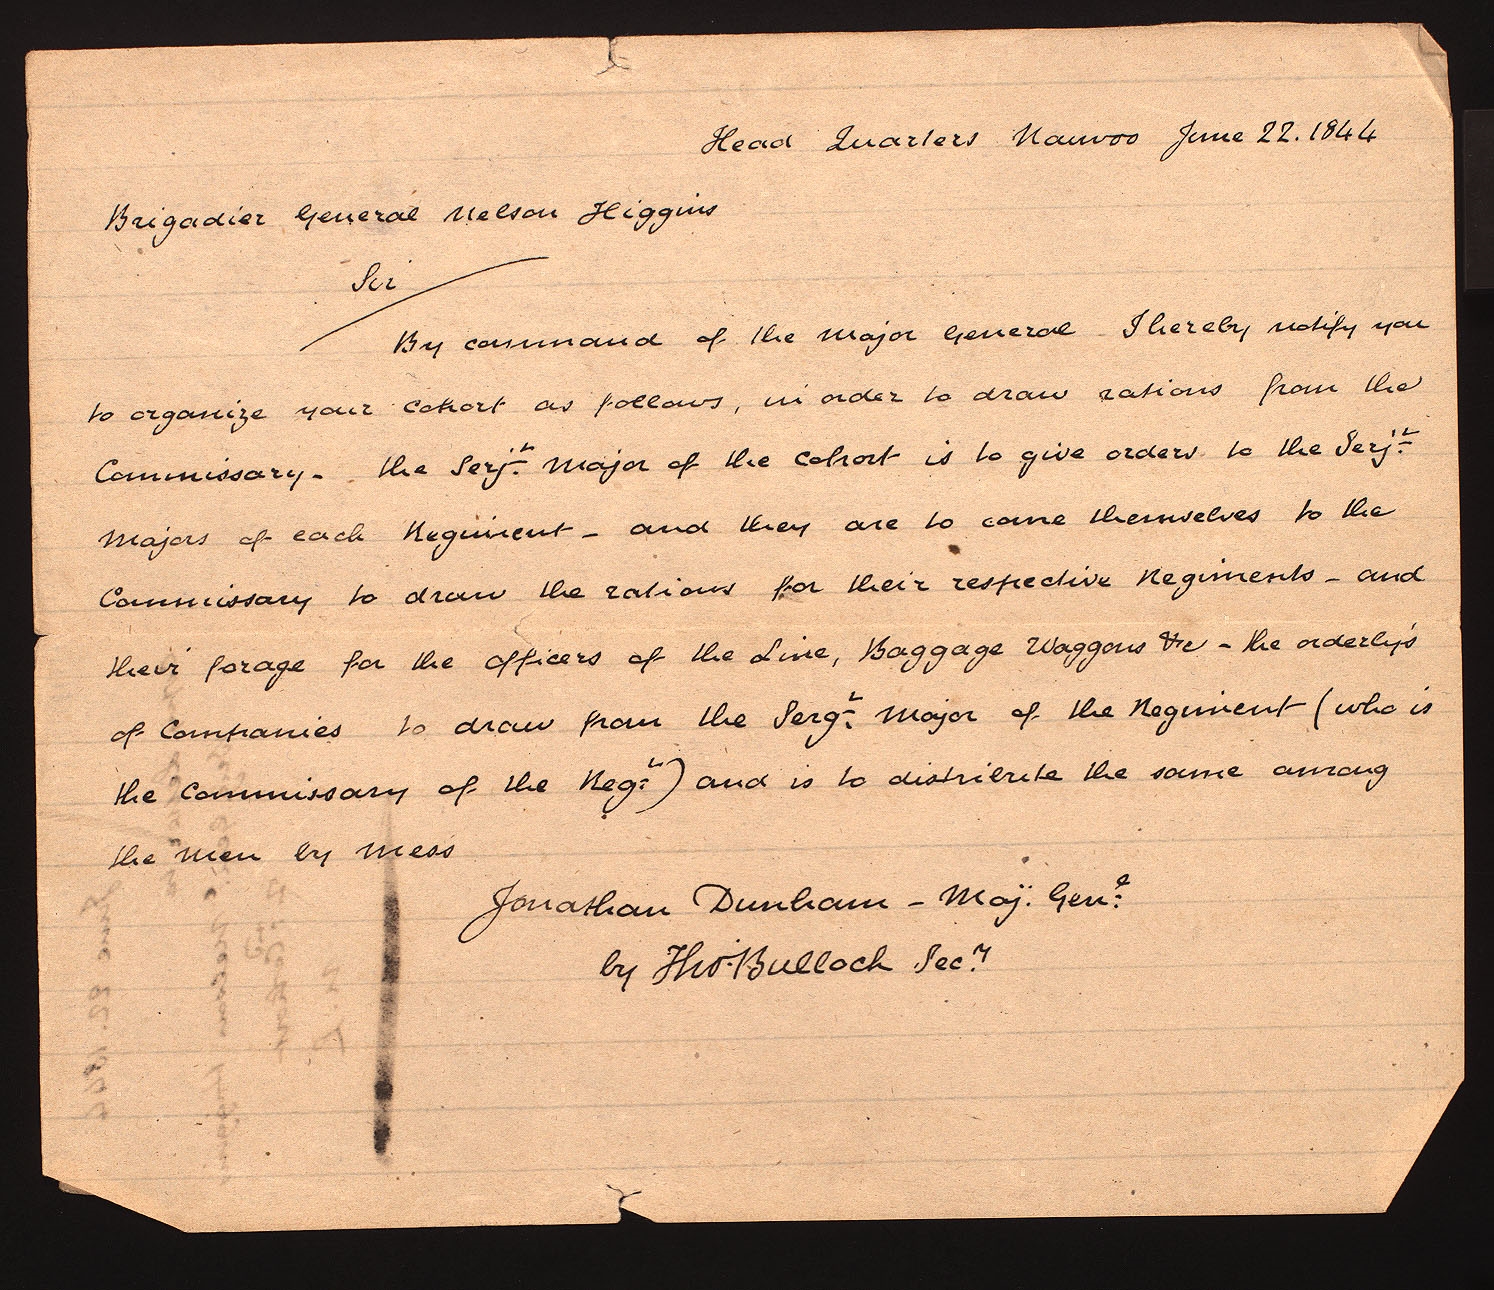 Head Quarters Nauvoo June 22. 1844
Brigadier General Nelson Higgins
Sir
By command of the Major General I hereby notify you
to organize your Cohort as follows, in order to draw rations from the
Commissary - the Serjt. Major of the Cohort is to give orders to the Serjt.
Majors of each Regiment - and they are to come themselves to the
Commissary to draw the rations for their respective Regiments - and
their forage for the officers of the Line, Baggage Waggons &c - the orderly's
of Companies to draw from the Sergt. Major of the Regiment (who is
the Commissary of the Regt.) and is to distribute the same among
the Men by Mess
Jonathan Dunham - Maj: Genl.
by Thos. Bullock Secy.
June 22. 1844